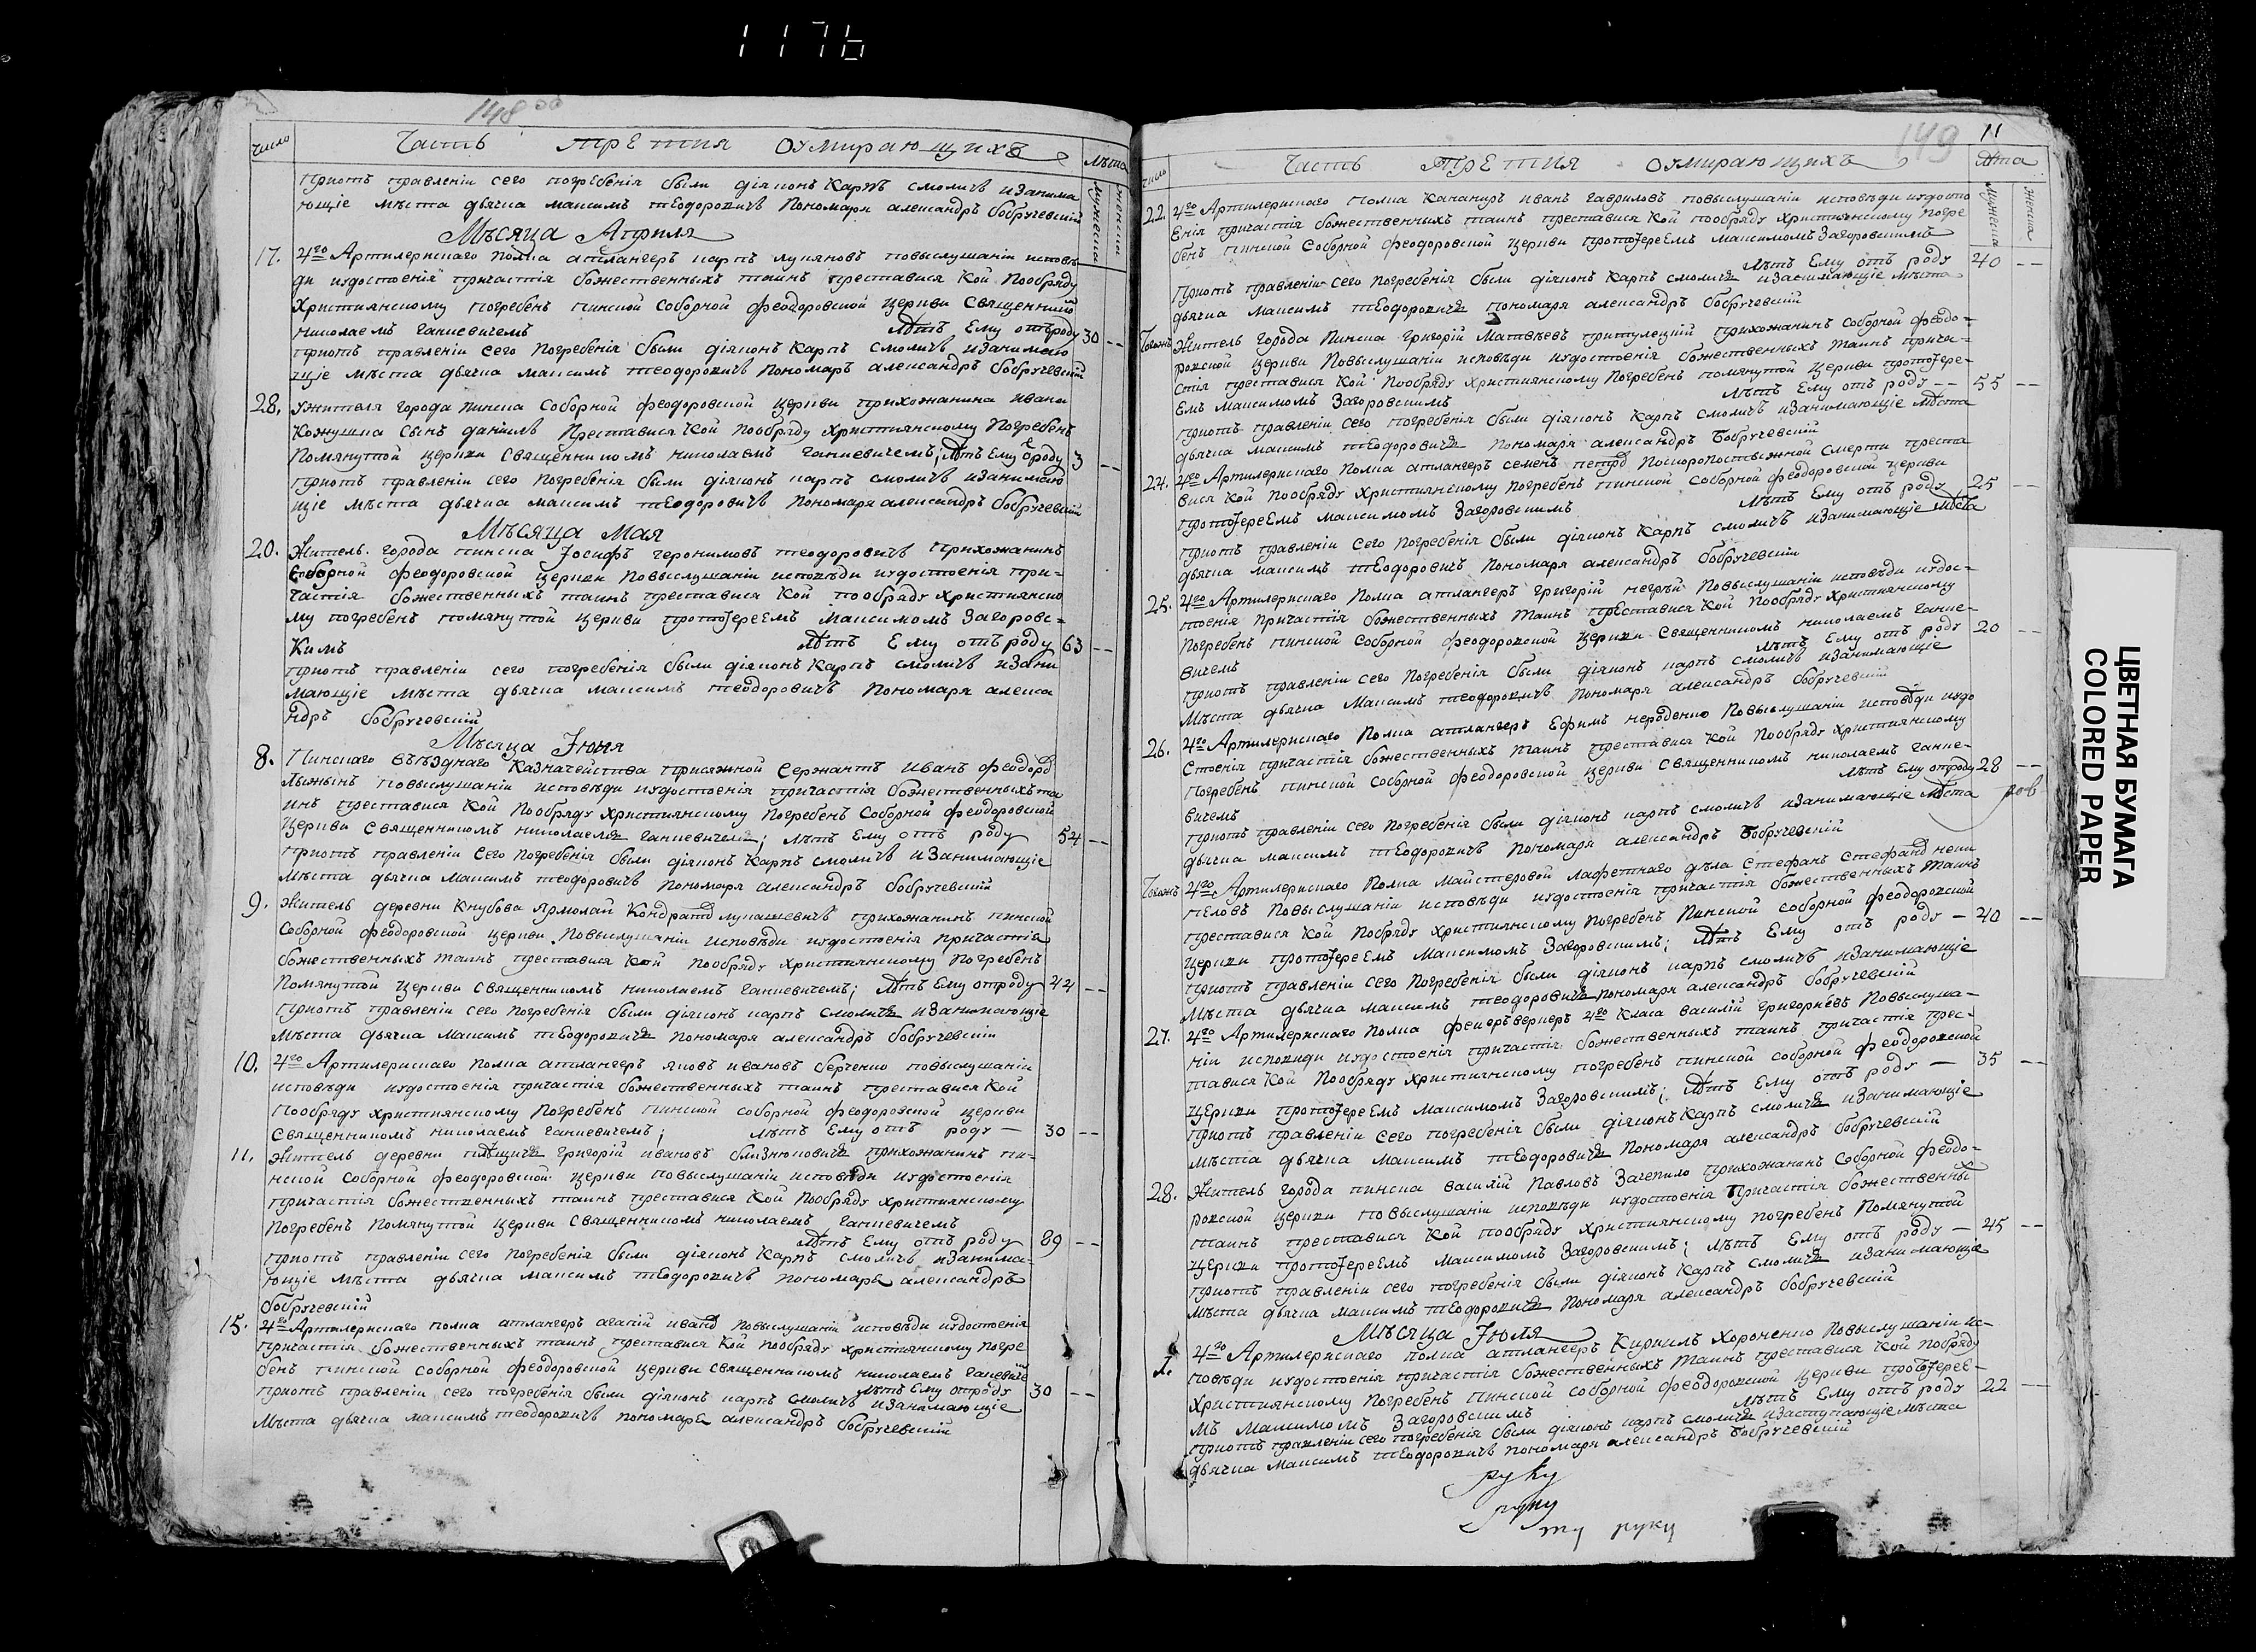 1176
148 об
Число
Часть третия оумирающихъ
Лѣта
Мужеска
Женска
Приотъ правленіи сего погребенія были діяконъ Карпъ смоличъ изанима
ющіе мѣста дьячка максимъ теодоровичъ Пономаря александръ бобручевскій
Мѣсяца Априля
17. 4го Артилерискаго Полка атлангеръ карпъ лукяновъ повыслушаніи исповѣ
ди иудостоенія причастія божественныхъ таинъ преставися Кой Пообряду
Християнскому погребенъ пинской соборной феодоровской Церкви Священнико
николаемъ ганкевичемъ Лѣтъ Ему отъроду 30 --
приотъ правленіи Сего Погребенія были діяконъ Карпъ смоличъ изанимаю
щіе мѣста дьячка максимъ теодоровичъ Пономаръ александръ бобручевскій
28. ужителя города пинска Соборной феодоровской Церкви прихожанина ивана
Кожушка Сынъ данилъ Преставися Кой пообряду християнскому Погребенъ
Помянутой церкви священникомъ николаемъ ганкевичемъ; Лѣтъ Ему ѿроду 3 --
приотъ правленіи сего погребенія были діяконъ карпъ смоличъ изанимаю
щіе мѣста дьячка максимъ теодоровичъ Пономаря александръ бобручевскій
Мѣсяца Мая
20. Житель города пинска Іосифъ геронимовъ теодоровичъ прихожанинъ
Соборной феодоровской Церкви повыслушаніи исповѣди иудостоенія при-
частія божественныхъ таинъ преставися Кой пообряду християнско
му погребенъ помянутой церкви протоІереемъ максимомъ Загоровс-
Кимъ Лѣтъ Ему отъроду 63 --
приотъ правленіи сего погребенія были діяконъ Карпъ смоличъ изани
мающіе мѣста дьячка максимъ теодоровичъ Пономаря алекса
ндръ бобручевскій
Мѣсяца Іюня
8. Пинскаго въѣзднаго Казначейства присяжной Сержантъ иванъ феодоро
лыжынъ повыслушаніи исповѣди иудостоенія причастія божественныхъ та
инъ преставися Кой Пообряду християнскому Погребенъ Соборной феодоровской
Церкви священникомъ николаемъ ганкевичемъ; лѣтъ Ему отъ роду 54 --
приотъ правленіи сего погребенія были діяконъ Карпъ смоличъ изанимающіе
мѣста дьячка максимъ теодоровичъ Пономаря александръ бобручевскій
9. Житель деревни Кнубова Ярмолай Кондрато лукашевичъ прихожанинъ пинской
Соборной феодоровской церкви Повыслушаніи исповѣди иудостоенія причастія
божественныхъ таинъ преставися кой пообряду християнскому погребенъ
Помянутой Церкви священникомъ николаемъ ганкевичемъ; Лѣтъ Ему отроду 42 --
приотъ правленіи сего погребенія были діяконъ карпъ смоличъ изанимающіе
мѣста дьячка максимъ теодоровичъ Пономаря александръ бобручевскій
10. 4го Артилерискаго полка атлангеръ яковъ ивановъ берченко повыслушаніи
исповѣди иудостоенія причастія божественныхъ таинъ преставися Кой
Пообряду християнскому погребенъ пинской соборной феодоровской церкви
священникомъ николаемъ ганкевичемъ; лѣтъ Ему отъ роду — 30 --
11. Житель деревни Григорій ивановъ близнюковичъ прихожанинъ пи-
нской соборной феодоровской Церкви повыслушаніи исповѣди иудостоенія
причастія божественныхъ таинъ преставися Кой Пообряду християнскому
Погребенъ Помянутой Церкви священникомъ николаемъ ганкевичемъ
Лѣтъ Ему отъ роду 89 --
приотъ правленіи сего погребенія были діяконъ Карпъ смоличъ изанима-
ющіе мѣста дьячка максимъ теодоровичъ пономаря александръ
бобручевскій
15. 4го Артилерискаго полка атлангеръ агапій ивано повыслушаніи исповѣди иудостоенія
причастія божественныхъ таинъ преставися кой пообряду християнскому погре
бенъ пинской соборной феодоровской церкви священникомъ николаемъ ганкевиче
лѣтъ Ему отроду 30 --
приотъ правленіи сего погребенія были діяконъ карпъ смоличъ изанимающіе
Мѣста дьячка максимъ теодоровичъ пономаря александръ бобручевскій
149
11
число
Часть третия оумирающихъ
Лѣта
Мужеска
Женска
22. 4го Артилерискаго полка Канониръ иванъ гавриловъ повыслушаніи исповѣди иудосто
Енія причастія божественныхъ таинъ преставися Кой пообряду християнскому погре
бенъ пинской Соборной феодоровской Церкви протоІереемъ максимомъ Загоровскимъ
лѣтъ Ему отъ роду 40 --
Приотъ правленіи сего погребенія были діяконъ Карпъ смоличъ изанимающіе мѣста
дьячка максимъ теодоровичъ пономаря александръ бобручевскій
Тогожъ Житель города Пинска Григорій Матвѣевъ притулецкій прихожанинъ соборной феодо-
ровской церкви Повыслушаніи исповѣди иудостоенія божественныхъ таинъ прича-
стія преставися Кой Пообряду християнскому Погребенъ помянутой Церкви протоІере-
Емъ Максимомъ Загоровскимъ лѣтъ Ему отъ роду -- 55 --
приотъ правленіи сего погребенія были діяконъ Карпъ смоличъ изанимающіе мѣста
дьячка максимъ теодоровичъ пономаря александръ бобручевскій
24. 4го Артилерискаго Полка атлангеръ семенъ петро Поскоропостыжной смерти преста
вися Кой пообряду християнскому погребенъ пинской соборной феодоровской церкви
протоІереемъ максимомъ Загоровскимъ лѣтъ Ему отъ роду 25 --
приотъ правленіи Сего погребенія были діяконъ Карпъ смоличъ изанимающіе мѣста
дьячка максимъ теодоровичъ Пономаря александръ бобручевскій
25. 4го Артилерискаго Полка атлангеръ григорій негрѣй Повыслушаніи исповѣди иудос-
тоенія причастія божественныхъ таинъ преставися Кой Пообряду християнскому
Погребенъ пинской соборной феодоровской церкви священникомъ николаемъ ганке-
вичемъ лѣтъ Ему отъ роду 20 --
приотъ правленіи сего погребенія были діяконъ карпъ смоличъ изанимающіе
Мѣста дьячка Максимъ теодоровичъ Пономаря александръ бобручевскій
26. 4го Артилерискаго Полка атлангеръ Ефимъ нероденко Повыслушаніи исповѣди иудо
Стоенія причастія божественныхъ таинъ преставися Кой Пообряду християнскому
Погребенъ пинской соборной феодоровской церкви священникомъ николаемъ ганке-
вичемъ лѣтъ Ему отроду 28 --
приотъ правленіи сего погребенія были діяконъ карпъ смоличъ изанимающіе мѣста
дьячка максимъ теодоровичъ пономаря александръ бобручевскій
Тогожъ 4го Артилерискаго Полка Майстеровой лафетнаго дѣла Стефанъ Стефано непи
пеловъ Повыслушаніи исповѣди иудостоенія причастія божественныхъ таинъ
преставися Кой Побряду християнскому погребенъ Пинской соборной феодоровской
Церкви протоІереемъ Максимомъ Загоровскимъ; Лѣтъ Ему отъ роду — 40 --
приотъ правленіи сего погребенія были діяконъ карпъ смоличъ изанимающіе
Мѣста дьячка максимъ теодоровичъ пономаря александръ бобручевскій
27. 4го Артилерискаго полка феиеръверкеръ 4го Класа василій григорьевъ Повыслуша-
ніи исповиди иудостоенія причастія божественныхъ таинъ причастія прес-
тавися Кой Пообряду християнскому погребенъ пинской соборной феодоровской
церкви протоІереемъ Максимомъ Загоровскимъ; Лѣтъ Ему отъ роду — 35 --
приотъ правленіи сего погребенія были діяконъ Карпъ смоличъ изанимающіе
мѣста дьячка максимъ теодоровичъ Пономаря александръ бобручевскій
28. Житель города пинска василій Павловъ Зачепило прихожанинъ Соборной феодо-
ровской церкви повыслушаніи исповѣди иудостоенія Причастія божественны
таинъ преставися Кой пообряду християнскому погребенъ Помянутой
церкви протоІереемъ Максимомъ Загоровскимъ; лѣтъ Ему отъ роду — 45 --
приотъ правленіи сего погребенія были діяконъ Карпъ смоличъ изанимающіе
Мѣста дьячка максимъ теодоровичъ Пономаря александръ бобручевскій
Мѣсяца Іюля
1. 4го Артилерискаго полка атлангеръ Кирилъ Хороненко Повыслушаніи ис-
повѣди иудостоенія причастія божественныхъ таинъ преставися Кой пообряду
християнскому погребенъ пинской соборной феодоровской церкви протоІерее-
мъ Максимомъ Загоровскимъ лѣтъ Ему отъ роду 22 --
приотъ правленіи сего погребенія были діяконъ карпъ смоличъ изаступающіе мѣста
дьячка максимъ теодоровичъ пономаря александръ бобручевскій
руку
руку
ту руку
ЦВЕТНАЯ БУМАГА
COLORED PAPER